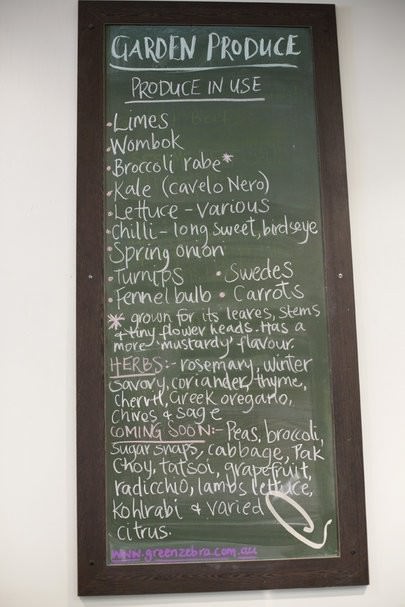 GARDEN PRODUCE
PRODUCE IN USE
• Limes
• Wombok
• Broccoli rabe*
• Kale (cavelo Nero)
• Lettuce - various
• Chilli - long sweet, birdseye
• Spring onion
• Turnips • Swedes
• Fennel bulb • Carrots
* grown for its leaves, stems
& tiny flower heads. Has a
more 'mustardy' flavour.
HERBS:- rosemary, winter
savory, coriander, thyme,
chervil, Greek oregano,
chives & sage
COMING SOON:- Peas, broccoli,
sugar snaps, cabbage, Pak
choy, tatsoi, grapefruit,
radicchio, lambs lettuce,
Kohlrabi & varied
citrus.
www.greenzebra.com.au